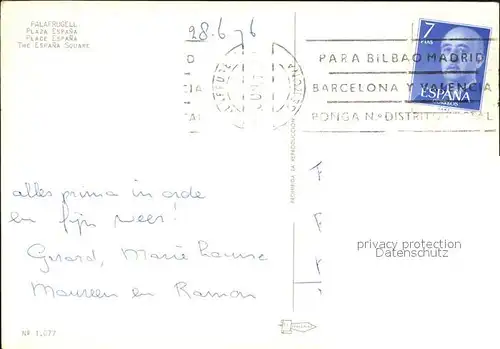 PALAFRUGELL
PLAZA ESPAÑA
PLACE ESPAÑA
THE ESPAÑA SQUARE
28.6.76
7
PTAS
PARA BILBAO MADRID
BARCELONA Y VALENCIA
PONGA N.º DISTRITO POSTAL
ESPAÑA
CORREOS
PROHIBIDA SU REPRODUCCION
alles prima in orde
en fijn weer!
Gerard, Marie Louise
Maureen en Ramon
privacy protection
Datenschutz
Nº 1.077